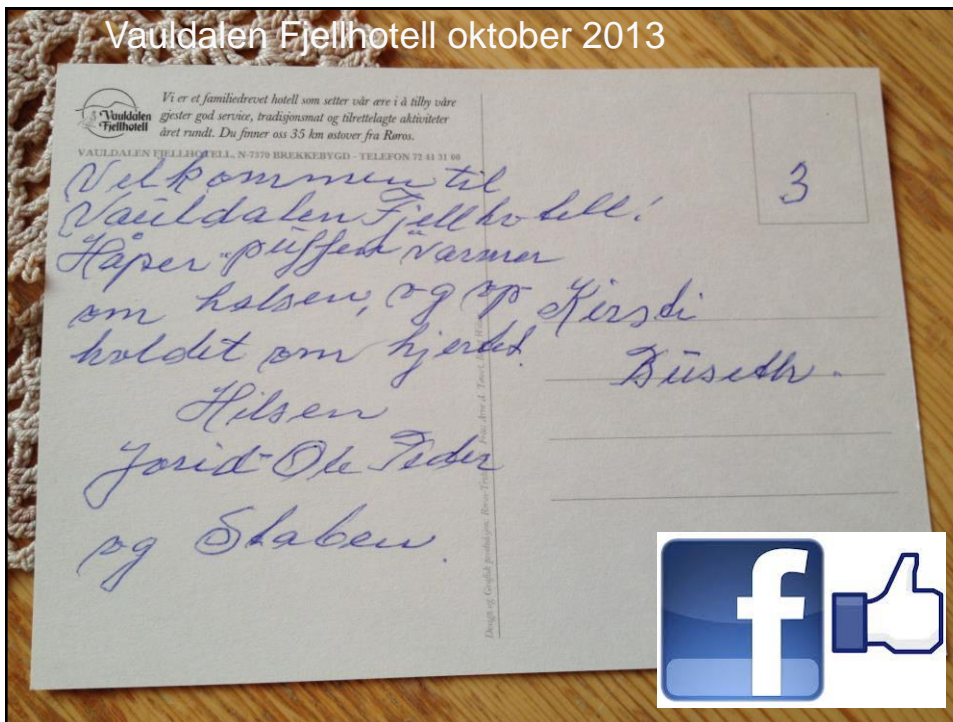 Vauldalen Fjellhotell oktober 2013
Vauldalen
Fjellhotell
Vi er et familiedrevet hotell som setter vår ære i å tilby våre
gjester god service, tradisjonsmat og tilrettelagte aktiviteter
året rundt. Du finner oss 35 km østover fra Røros.
VAULDALEN FJELLHOTELL, N-7370 BREKKEBYGD - TELEFON 72 41 31 00
Velkommen til
Vauldalen Fjellhotell!
Håper "puffen" varmer
om halsen, og op
holdet om hjertet.
Hilsen
Jorid-Ole Peder
og Staben.
3
Kirsti
Buseth.
Design og Grafisk produksjon: Røros
f